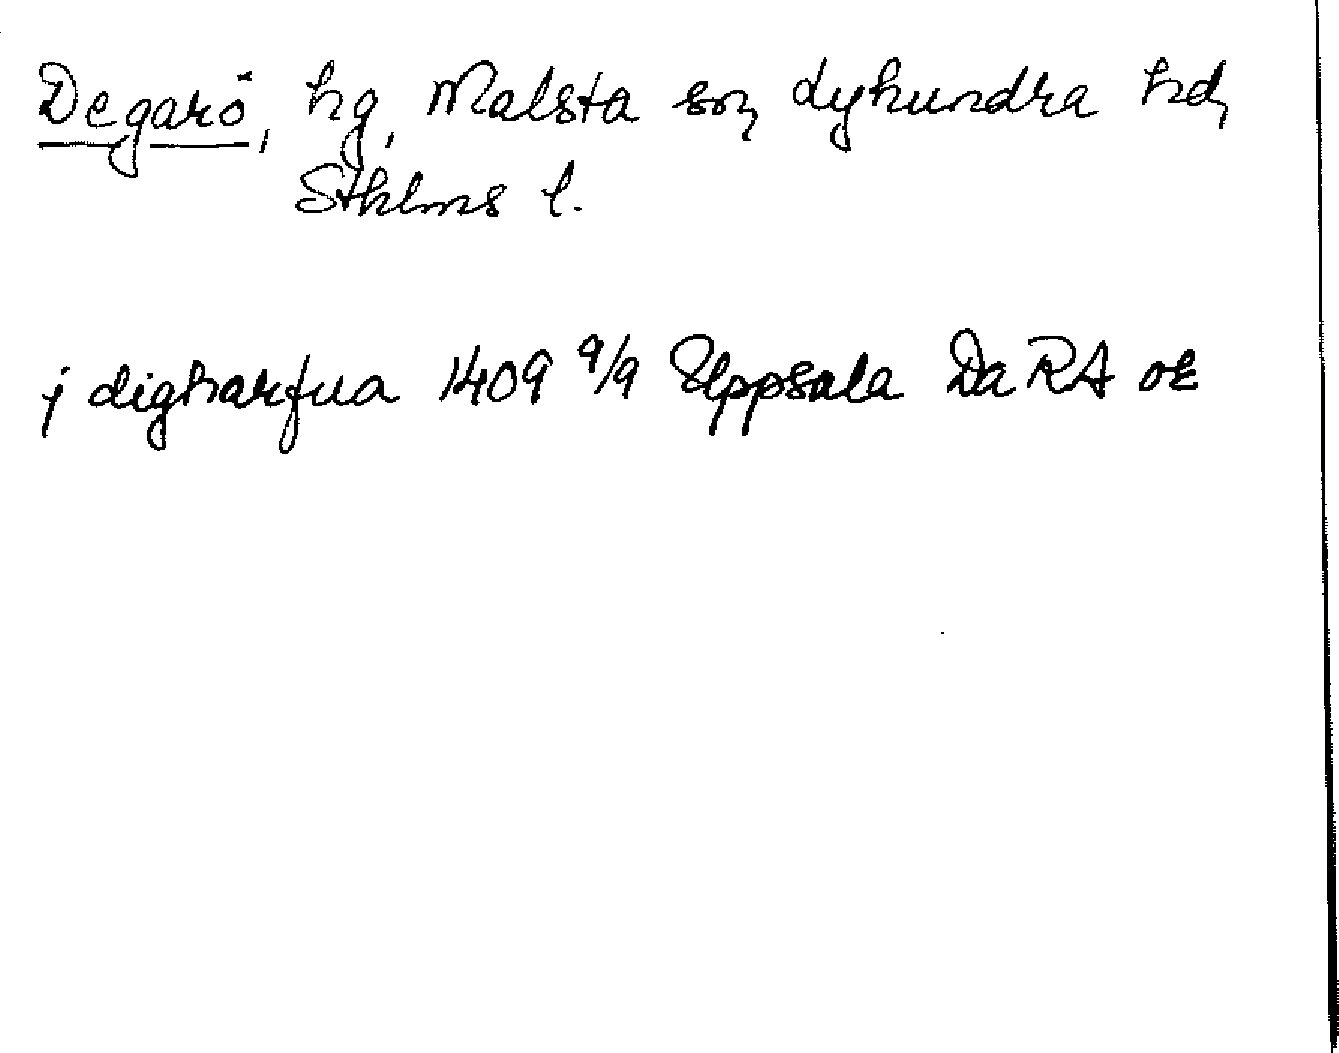 Degarö, hg, Malsta sn, Lyhundra hd,
Sthlms l.
j digharfua 1409 9/9 Uppsala Da RA or